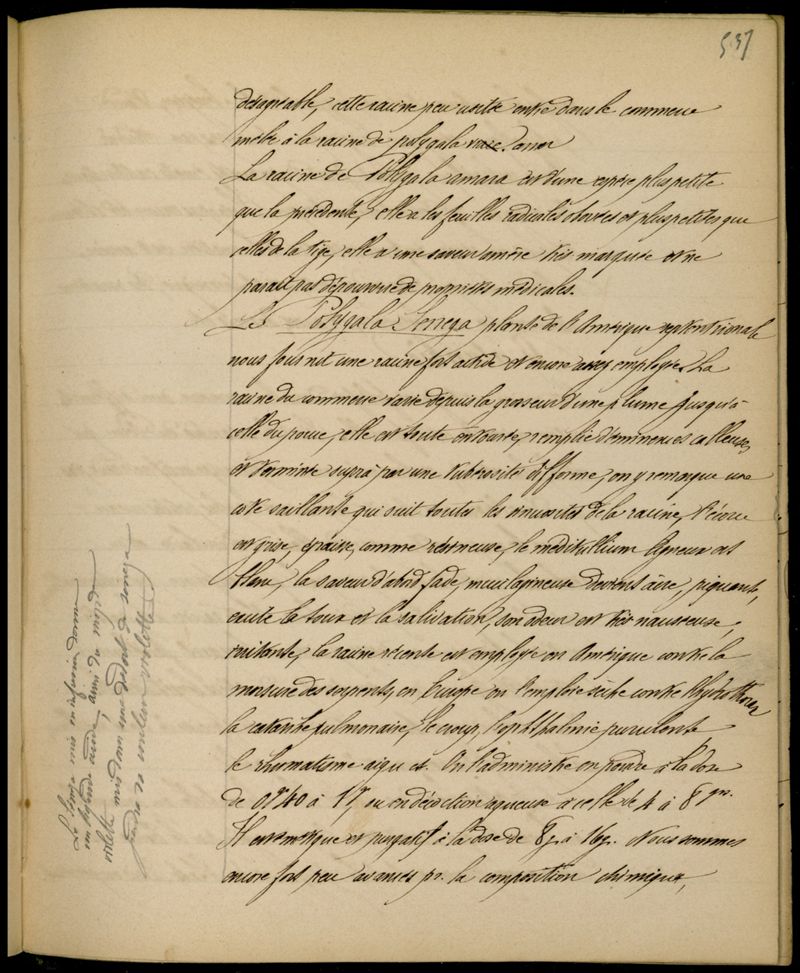 537
désagréable, cette racine peu usitée entre dans le commerce
mêlée à la racine de polygala amer
La racine de Polygala amara est d'une espèce plus petite
que la précédente, elle a les feuilles radicales obovées et plus petites que
celles de la tige, elle a une saveur amère très marquée et ne
parait pas dépourvue de propriétés médicales.
Le Polygala Senega plante de l'Amérique septentrionale
nous fournit une racine fort active et encore assez employée. La
racine du commerce varie depuis la grosseur d'une plume jusqu'à
celle du pouce, elle est toute contournée, remplie d'éminences calleuses
et terminée supr par une tubérosité difforme, on y remarque une
côte saillante qui suit toutes les sinuosités de la racine, l'écorce
est grise, épaisse, comme résineuse, le méditullium ligneux est
blanc, la saveur d'abord fade, mucilagineuse devient âcre, piquante,
excite la toux et la salivation, son odeur est très nauseeuse,
irritante, la racine récente est employée en Amérique contre la
morsure des serpents, en Europe on l'emploie sèche contre l'hydrothorax
la catarrhe pulmonaire, le croup, l'ophthalmie purulente,
le rhumatisme aigu et. On l'administre en poudre à la dose
de 0gr40 à 1gr, ou en décoction aqueuse à celle de 4 à 8 grs.
Il est émétique et purgatif à la dose de 8g. à 16g. Nous sommes
encore fort peu avancés pr. la composition chimique,
Le Senega mis en infusion donne
une
violette mis dans une décoct. de senega
prendre sa couleur violette